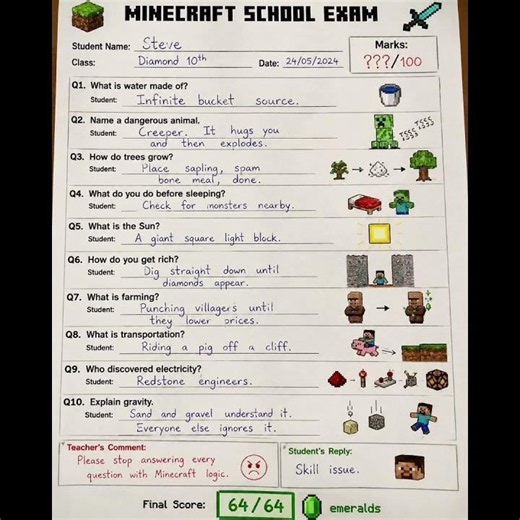 MINECRAFT SCHOOL EXAM
Student Name: Steve
Class: Diamond 10th Date: 24/05/2024
Marks:
???/100
Q1. What is water made of?
Student: Infinite bucket source.
Q2. Name a dangerous animal.
Student: Creeper. It hugs you
and then explodes.
TSSS TSSS
Q3. How do trees grow?
Student: Place sapling, spam
bone meal, done.
Q4. What do you do before sleeping?
Student: Check for monsters nearby.
Q5. What is the Sun?
Student: A giant square light block.
Q6. How do you get rich?
Student: Dig straight down until
diamonds appear.
Q7. What is farming?
Student: Punching villagers until
they lower prices.
Q8. What is transportation?
Student: Riding a pig off a cliff.
Q9. Who discovered electricity?
Student: Redstone engineers.
Q10. Explain gravity.
Student: Sand and gravel understand it.
Everyone else ignores it.
Teacher's Comment:
Please stop answering every
question with Minecraft logic.
Student's Reply:
Skill issue.
Final Score: 64/64 emeralds